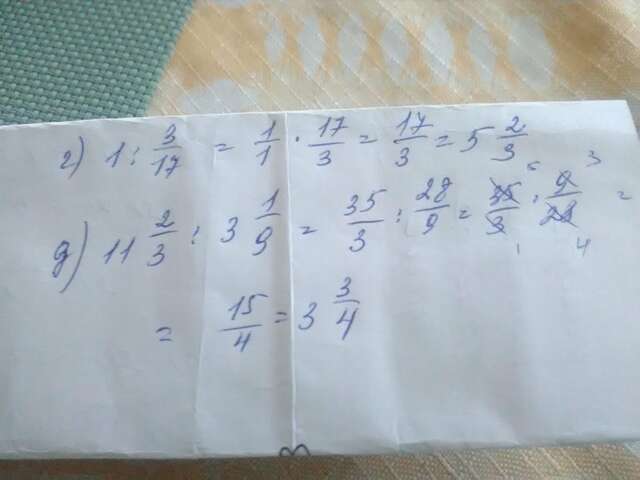 г) 1 : 3/17 = 1/1 · 17/3 = 17/3 = 5 2/3
д) 11 2/3 : 3 1/9 = 35/3 : 28/9 = 35/3 · 9/28 =
= 15/4 = 3 3/4